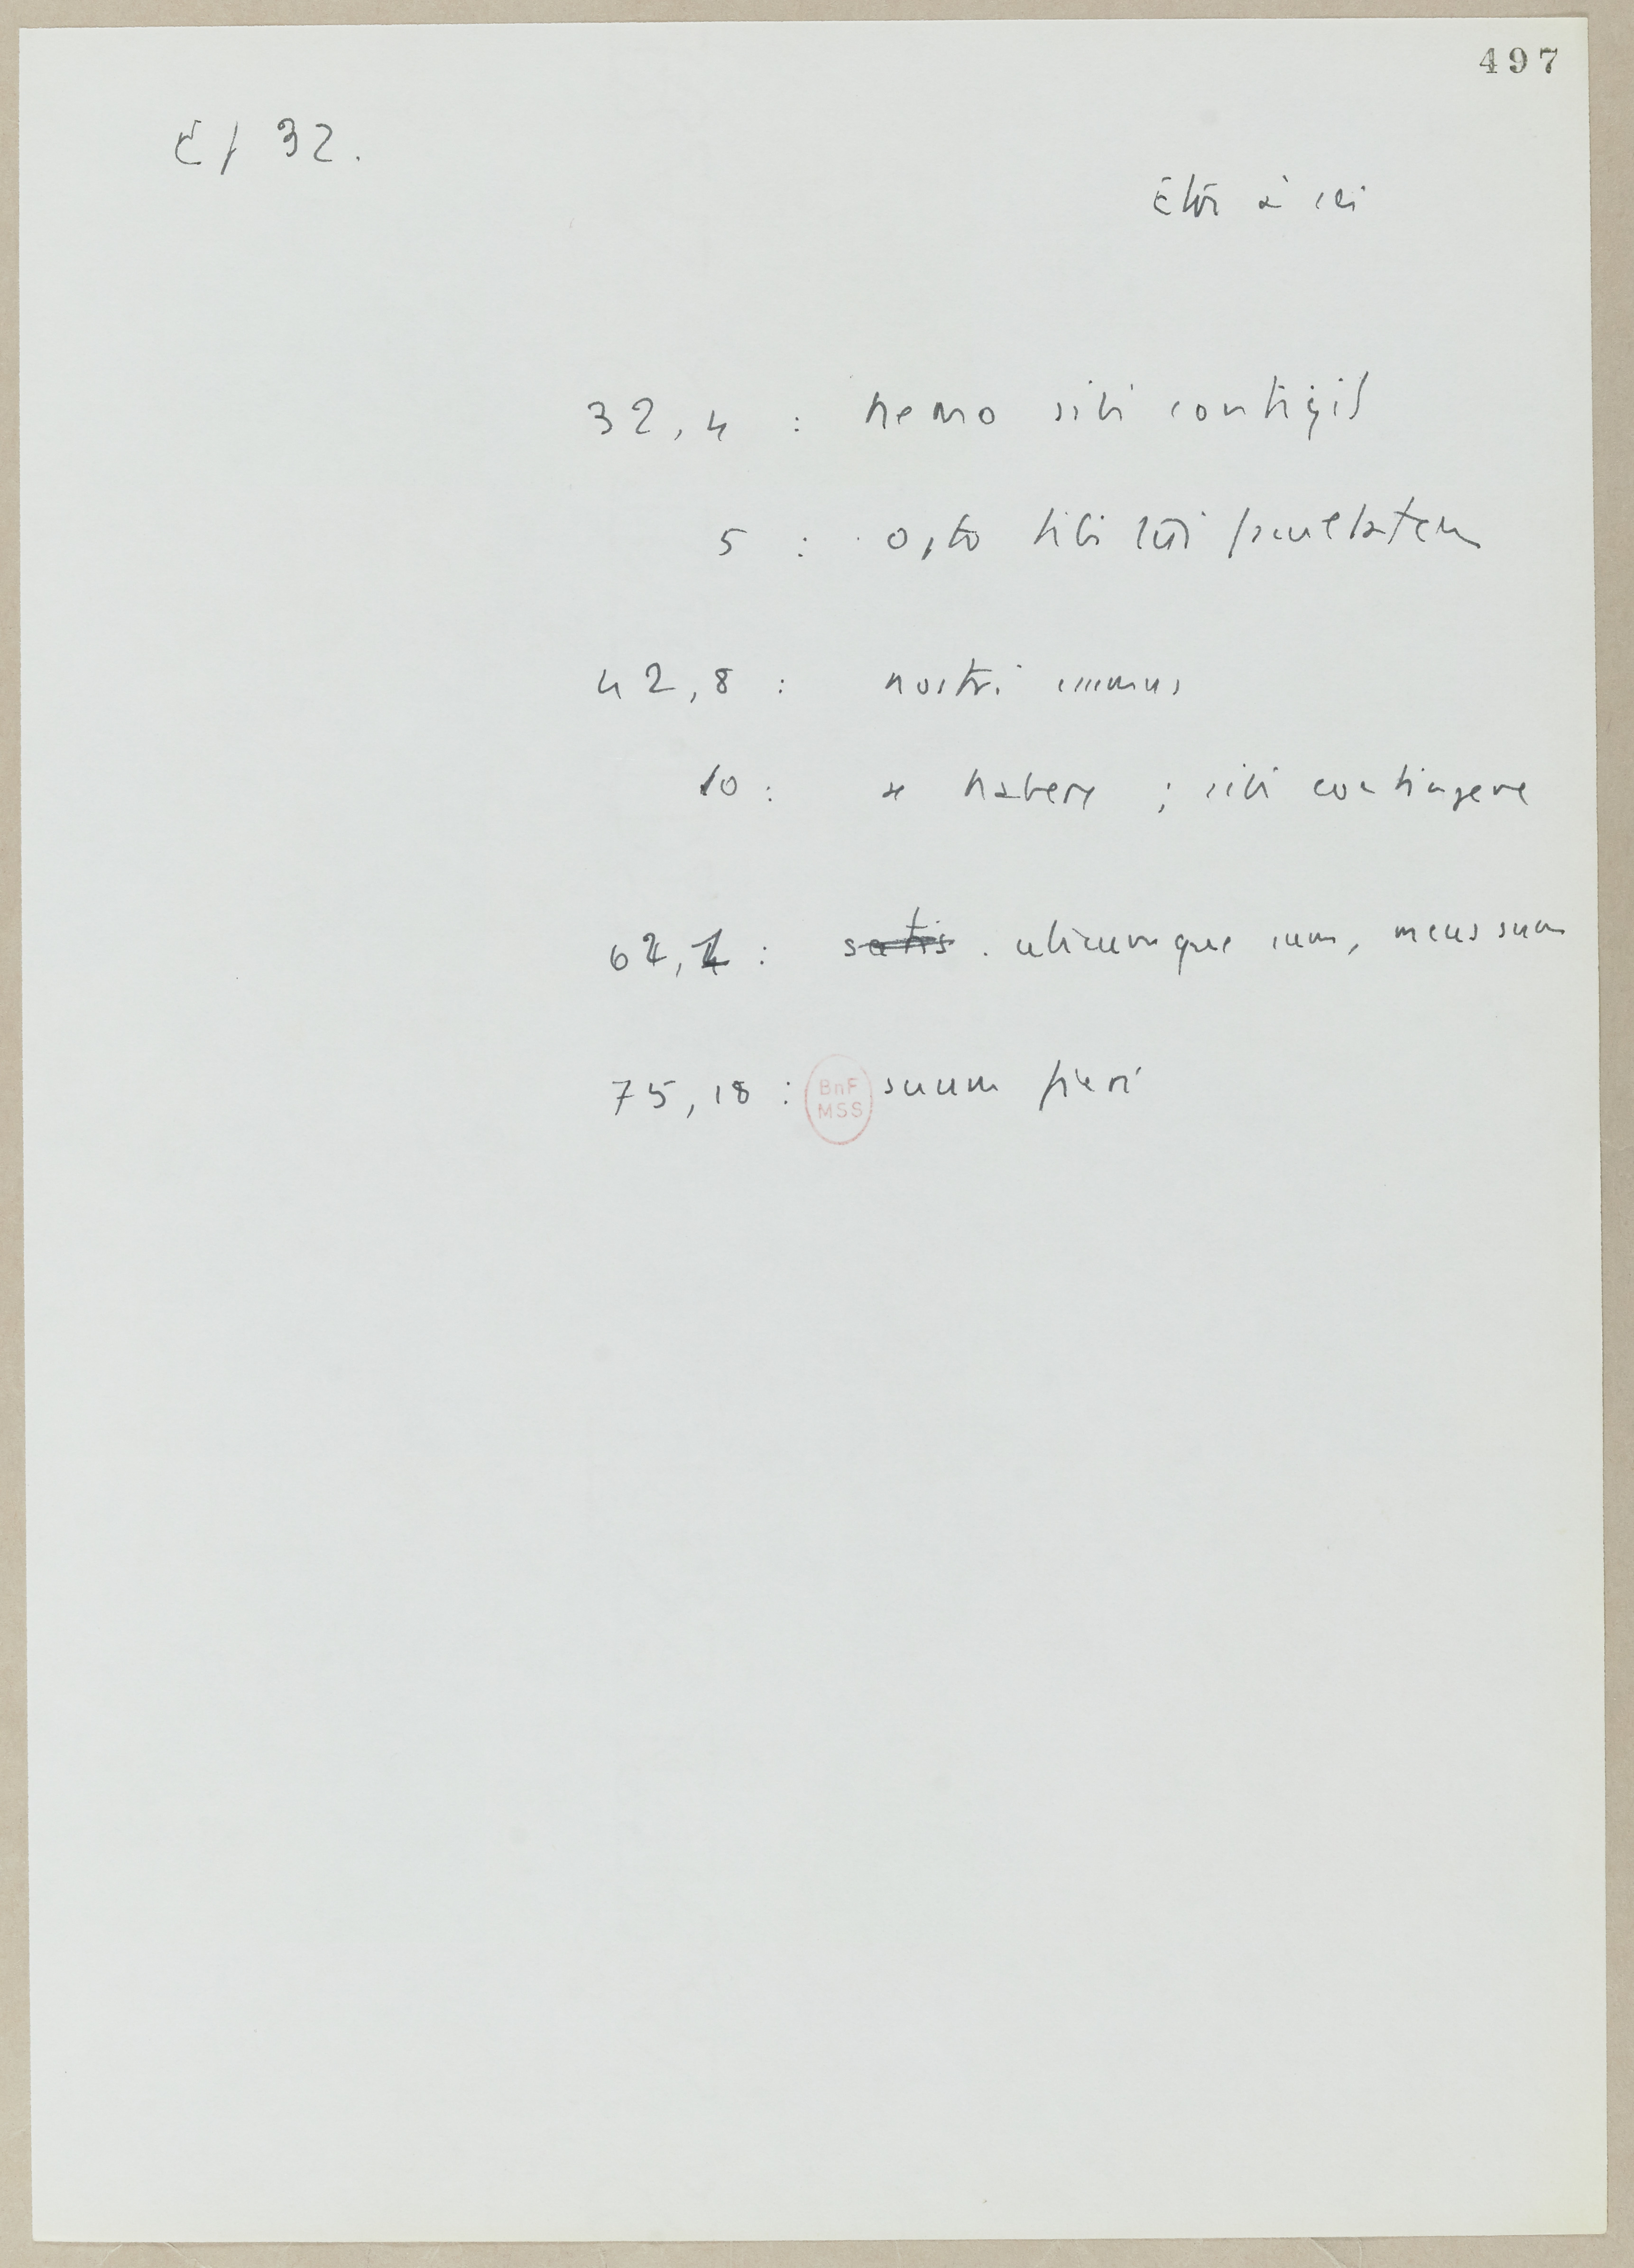 497
Ep 32.
Être à soi
32, 4 : nemo sibi contigit
5 : opto tibi tui facultatem
42, 8 : nostri essemus
10 : se habere ; sibi contingere
62, 1 : satis . ubicumque sum, meus sum
75, 18 : suum fieri
BnF
MSS